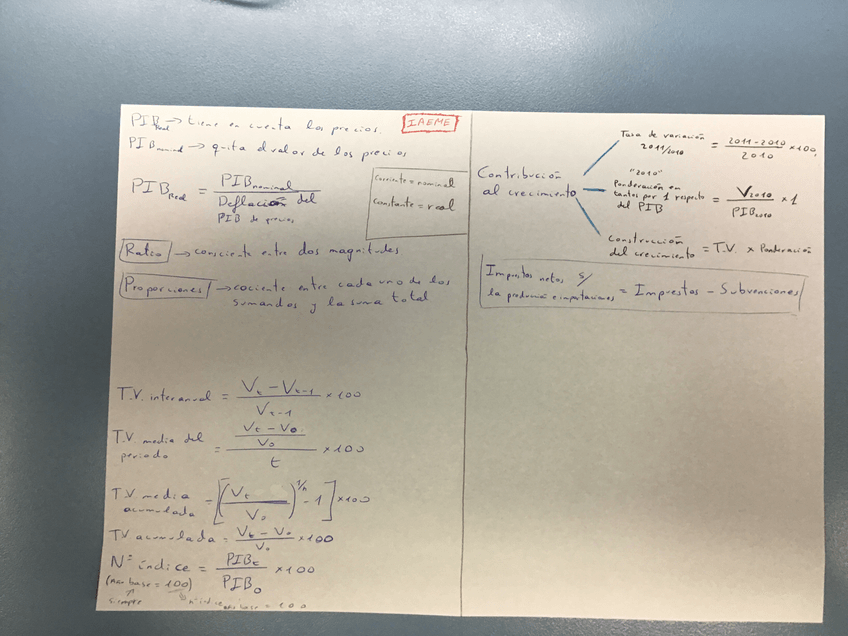 PIB Real → tiene en cuenta los precios.
IAEME
PIB nominal → quita el valor de los precios
PIB Real = PIB nominal / Deflación del PIB de precios
corriente = nominal
constante = real
Ratio → consciente entre dos magnitudes
Proporciones → cociente entre cada uno de los
sumandos y la suma total
T.V. interanual = Vt - Vt-1 / Vt-1 × 100
T.V. media del periodo = Vt - Vo / Vo / t × 100
T.V. media acumulada = [(Vt / Vo)^1/n - 1] × 100
TV acumulada = Vt - Vo / Vo × 100
Nº índice = PIBt / PIB0 × 100
base = 100)
siempre
nº índice base = 100
Contribución
al crecimiento
Tasa de variación
2011/2010
= 2011 - 2010 / 2010 × 100
"2010"
Ponderación en
tantos por 1 respecto
del PIB
= V2010 / PIB2010 × 1
Construcción
del crecimiento = T.V. × Ponderación
Impuestos netos s/
la producción e importaciones = Impuestos - Subvenciones